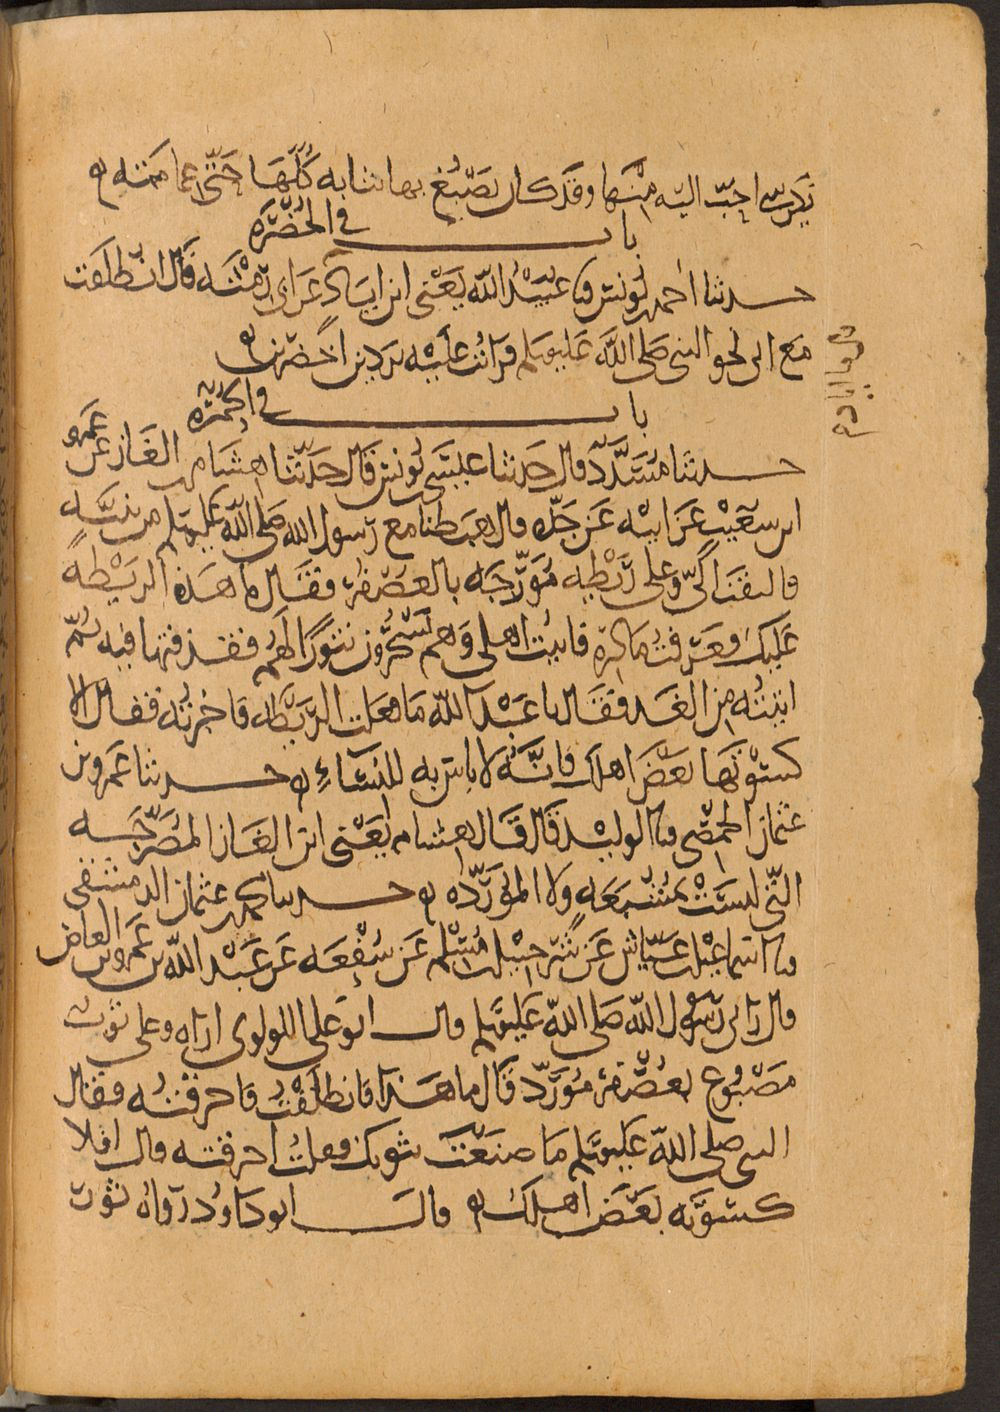 يكن شي احب اليه منها وقد كان يصبغ بها ثيابه كلها حتى عمامته
باب في الخضرة
حدثنا احمد بن يونس نا عبيد الله يعني ابن اياد عن ابي رمثة قال انطلقت
مع ابي نحو النبي صلى الله عليه وسلم فرايت عليه بردين اخضرين
باب في الحمرة
حدثنا مسدد قال حدثنا عيسى بن يونس قال حدثنا هشام بن الغاز عن عمرو
ابن شعيب عن ابيه عن جده قال هبطنا مع رسول الله صلى الله عليه وسلم من ثنية
فالتفت الي وعلي ريطة مضرجة بالعصفر فقال ما هذه الريطة
عليك فعرفت ما كره فاتيت اهلي وهم يسجرون تنورا لهم فقذفتها فيه ثم
اتيته من الغد فقال يا عبد الله ما فعلت الريطة فاخبرته فقال الا
كسوتها بعض اهلك فانه لا باس به للنساء حدثنا عمرو بن
عثمن الحمصي نا الوليد قال قال هشام يعني ابن الغاز المضرجة
التي ليست بمشبعة ولا الموردة حدثنا محمد بن عثمان الدمشقي
نا اسماعيل بن عياش عن شرحبيل بن مسلم عن شفعة عن عبد الله بن عمرو بن العاص
قال راني رسول الله صلى الله عليه وسلم قال ابو علي اللولوي اراه وعلي ثوب
مصبوغ بعصفر مورد قال ما هذا فانطلقت فاحرقته فقال
النبي صلى الله عليه وسلم ما صنعت بثوبك فقلت احرقته قال افلا
كسوته بعض اهلك قال ابو داود رواه ثور